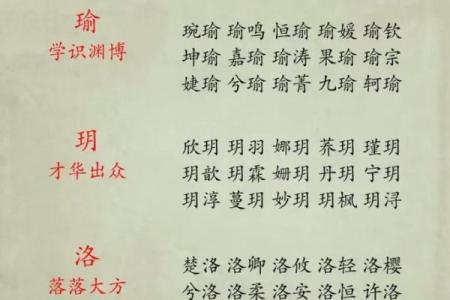 瑜
学识渊博
琬瑜 瑜鸣 恒瑜 瑜媛 瑜钦
坤瑜 嘉瑜 瑜涛 果瑜 瑜宗
婕瑜 兮瑜 瑜菁 九瑜 轲瑜
玥
才华出众
欣玥 玥羽 娜玥 荞玥 瑾玥
玥歆 玥霖 姗玥 丹玥 宁玥
玥淳 蔓玥 妙玥 玥枫 玥浔
洛
落落大方
楚洛 洛卿 洛攸 洛轻 洛樱
兮洛 洛柔 洛安 洛恒 许洛